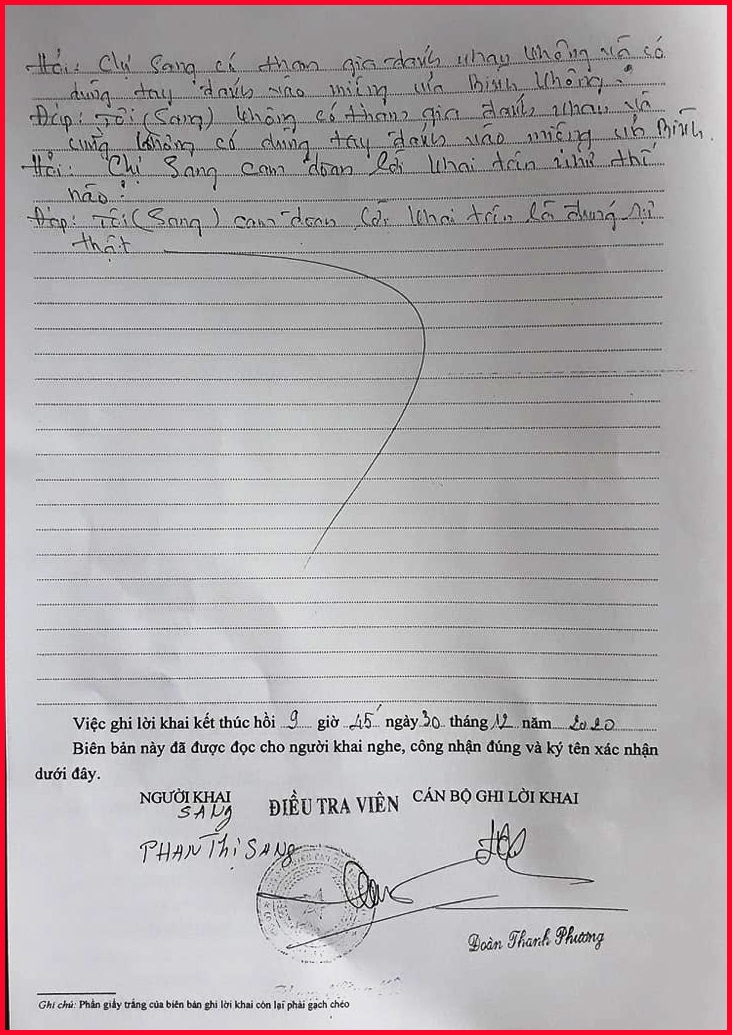 Hỏi: Chị Sang có tham gia đánh nhau không và có
dùng tay đánh vào miệng của Bình không?
Đáp: Tôi (Sang) không có tham gia đánh nhau và
cũng không có dùng tay đánh vào miệng của Bình.
Hỏi: Chị Sang cam đoan lời khai trên như thế
nào?
Đáp: Tôi (Sang) cam đoan lời khai trên là đúng sự
thật
Việc ghi lời khai kết thúc hồi 9 giờ 45 ngày 30 tháng 12 năm 2020
Biên bản này đã được đọc cho người khai nghe, công nhận đúng và ký tên xác nhận
dưới đây.
NGƯỜI KHAI ĐIỀU TRA VIÊN CÁN BỘ GHI LỜI KHAI
SANG
PHAN Thị SANG
Đoàn Thanh Phương
Ghi chú: Phần giấy trắng của biên bản ghi lời khai còn lại phải gạch chéo